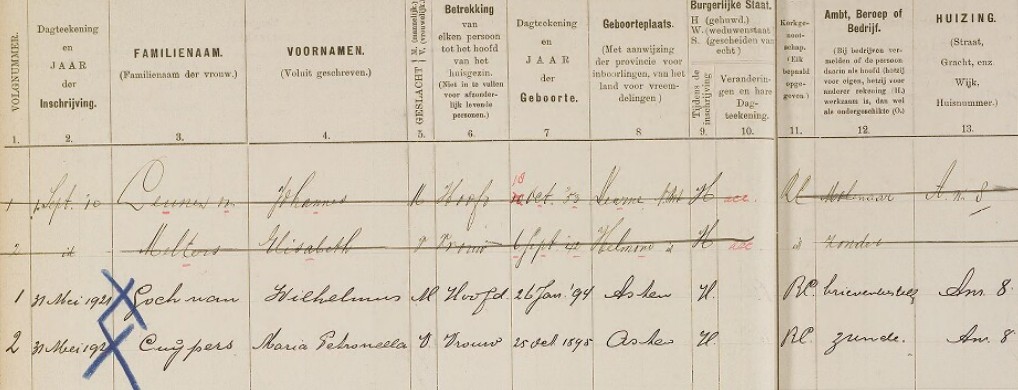 VOLGNUMMER. Dagteekening en JAAR der Inschrijving. FAMILIENAAM. (Familienaam der vrouw.) VOORNAMEN. (Voluit geschreven.) GESLACHT M. (mannelijk.) V. (vrouwelijk.) Betrekking van elken persoon tot het hoofd van het huisgezin. (Niet in te vullen voor afzonderlijk levende personen.) Dagteekening en JAAR der Geboorte. Geboorteplaats. (Met aanwijzing der provincie voor inboorlingen, van het land voor vreemdelingen) Burgerlijke Staat. H (gehuwd.) W. (weduwenstaat S. (gescheiden van echt) Tijdens de inschrijving Veranderingen en hare Dagteekening. Kerkgenootschap. (Elk bepaald opgegeven.) Ambt, Beroep of Bedrijf. (Bij bedrijven vermelden of de persoon daarin als hoofd (hetzij voor eigen, hetzij voor anderer rekening (H.) werkzaam is, dan wel als ondergeschikte (O.) HUIZING. (Straat, Gracht, enz Wijk. Huisnummer.)
1. 2. 3. 4. 5. 6. 7 8 9. 10. 11. 12. 13.
1 Sept. 10 Johannes M Hoofd Oct. '53 H acc. RC Molenaar An. 8
2 id Elisabeth V Vrouw Sept Helmond H acc id zonder
1 31 Mei 1921 Goch van Wilhelmus M Hoofd 26 Jan' '94 Asten H. RC. brievenbestell An. 8.
2 31 Mei 192 Cuÿpers Maria Petronella V. Vrouw 25 Oct 1895 Asten H. RC zonde. An. 8